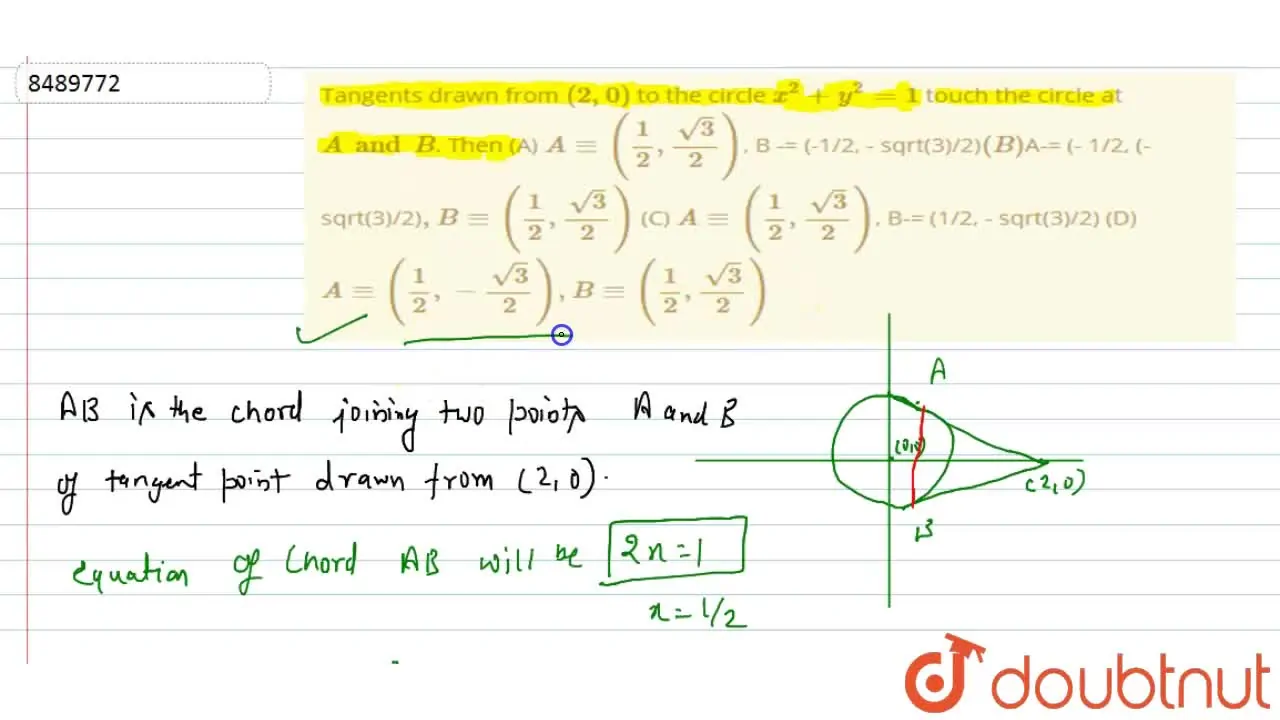 8489772
Tangents drawn from (2, 0) to the circle x² + y² = 1 touch the circle at
A and B. Then (A) A ≡ (1/2, √3/2), B -= (-1/2, - sqrt(3)/2)(B)A-= (- 1/2, (-
sqrt(3)/2), B ≡ (1/2, √3/2) (C) A ≡ (1/2, √3/2), B-= (1/2, - sqrt(3)/2) (D)
A ≡ (1/2, -√3/2), B ≡ (1/2, √3/2)
AB is the chord joining two points A and B
of tangent point drawn from (2,0).
equation of Chord AB will be 2x=1
x=1/2
A
(0,0)
(2,0)
B
doubtnut